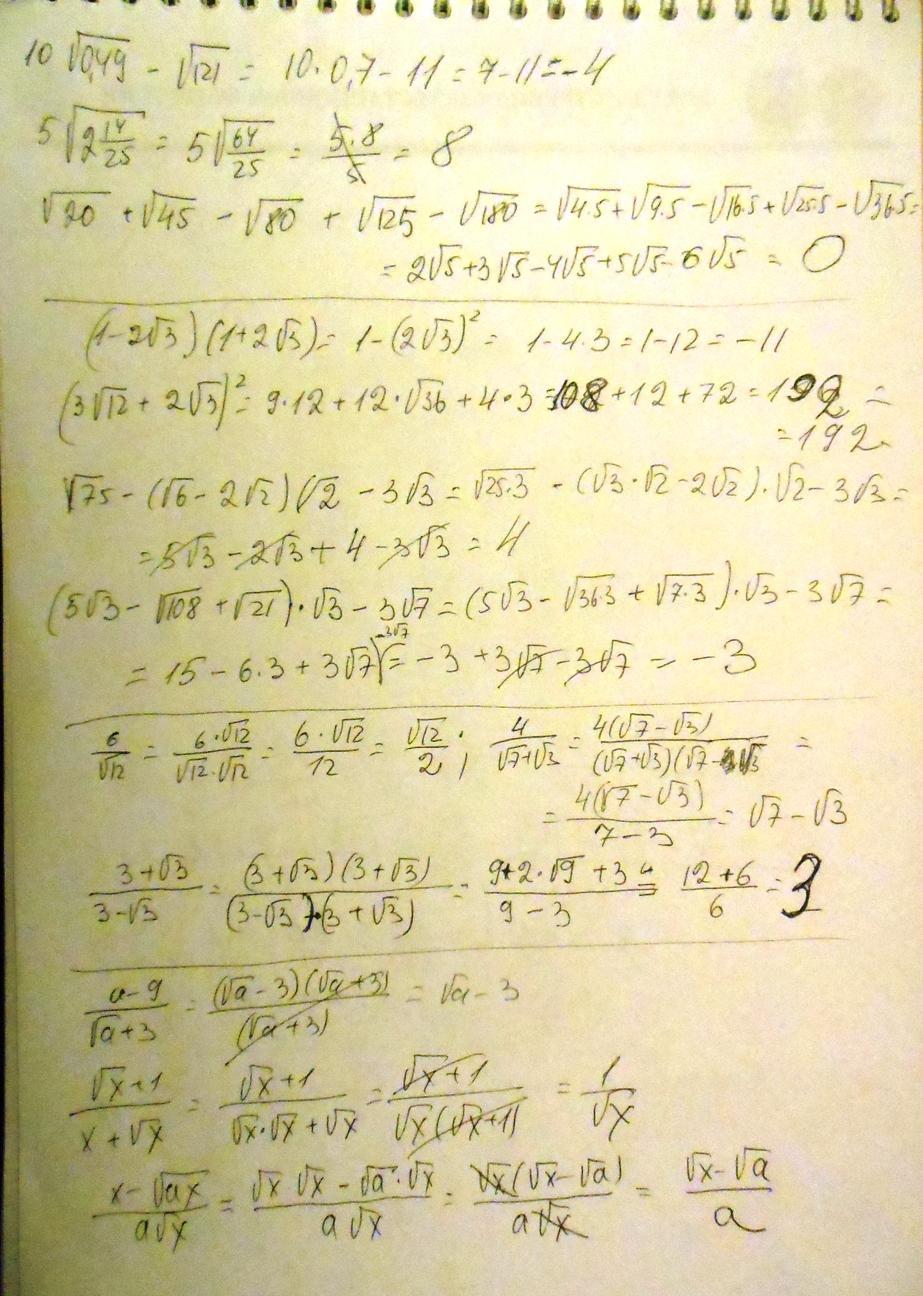 10√0,49 - √121 = 10·0,7 - 11 = 7 - 11 = -4
5√(2 14/25) = 5√(64/25) = 5·8/5 = 8
√20 + √45 - √80 + √125 - √180 = √4·5 + √9·5 - √16·5 + √25·5 - √36·5 =
= 2√5 + 3√5 - 4√5 + 5√5 - 6√5 = 0
(1-2√3)(1+2√3) = 1-(2√3)² = 1-4·3 = 1-12 = -11
(3√12 + 2√3)² = 9·12 + 12·√36 + 4·3 = 108 + 12 + 72 = 192 =
= 192
√75 - (√6 - 2√2)(√2 - 3√3 = √25·3 - (√3·√2 - 2√2)·√2 - 3√3 =
= 5√3 - 2√3 + 4 - 3√3 = 4
(5√3 - √108 + √21)·√3 - 3√7 = (5√3 - √36·3 + √7·3)·√3 - 3√7 =
= 15 - 6·3 + 3√7 -3√7 = -3 + 3√7 - 3√7 = -3
6/√12 = 6·√12/√12·√12 = 6·√12/12 = √12/2 ; 4/(√7+√3) = 4(√7-√3)/(√7+√3)(√7-√3 =
= 4(√7-√3)/(7-3) = √7 - √3
(3+√3)/(3-√3) = (3+√3)(3+√3)/(3-√3)·(3+√3) = (9+2·√9+3)/(9-3) = (12+6)/6 = 3
(a-9)/(√a+3) = (√a-3)(√a+3)/(√a+3) = √a - 3
(√x+1)/(x+√x) = (√x+1)/(√x·√x+√x) = (√x+1)/√x(√x+1) = 1/√x
(x-√ax)/a√x = (√x √x - √a·√x)/a√x = √x(√x-√a)/a√x = (√x-√a)/a